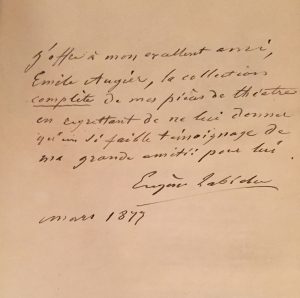 J'offre à mon excellent ami,
Emile Augier, la collection
complète de mes pièces de théatre
en regrettant de ne lui donner
qu'un si faible témoignage de
ma grande amitié pour lui
Eugène Labiche
mars 1877